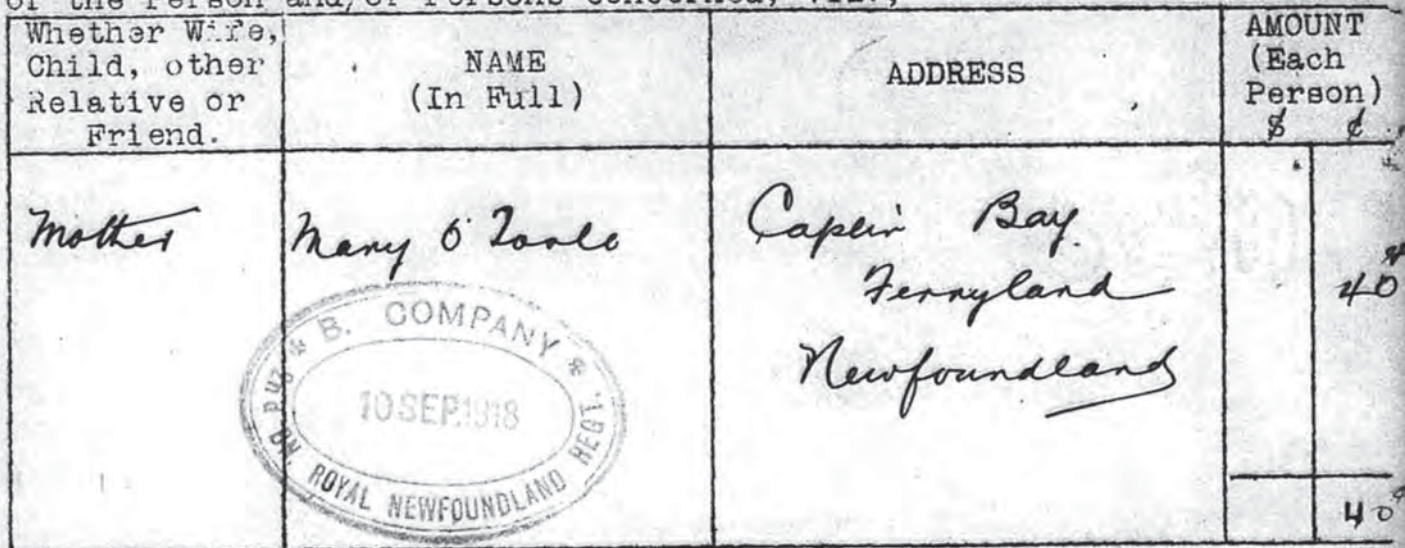 of the Person and/or Persons concerned, viz.,
Whether Wife,
Child, other
Relative or
Friend.
NAME
(In Full)
ADDRESS
AMOUNT
(Each
Person)
$ ¢
Mother
Mary O'Toole
Caplin Bay
Ferryland
Newfoundland
40
40
B. COMPANY
10 SEP. 1918
2nd BN. ROYAL NEWFOUNDLAND REGT.